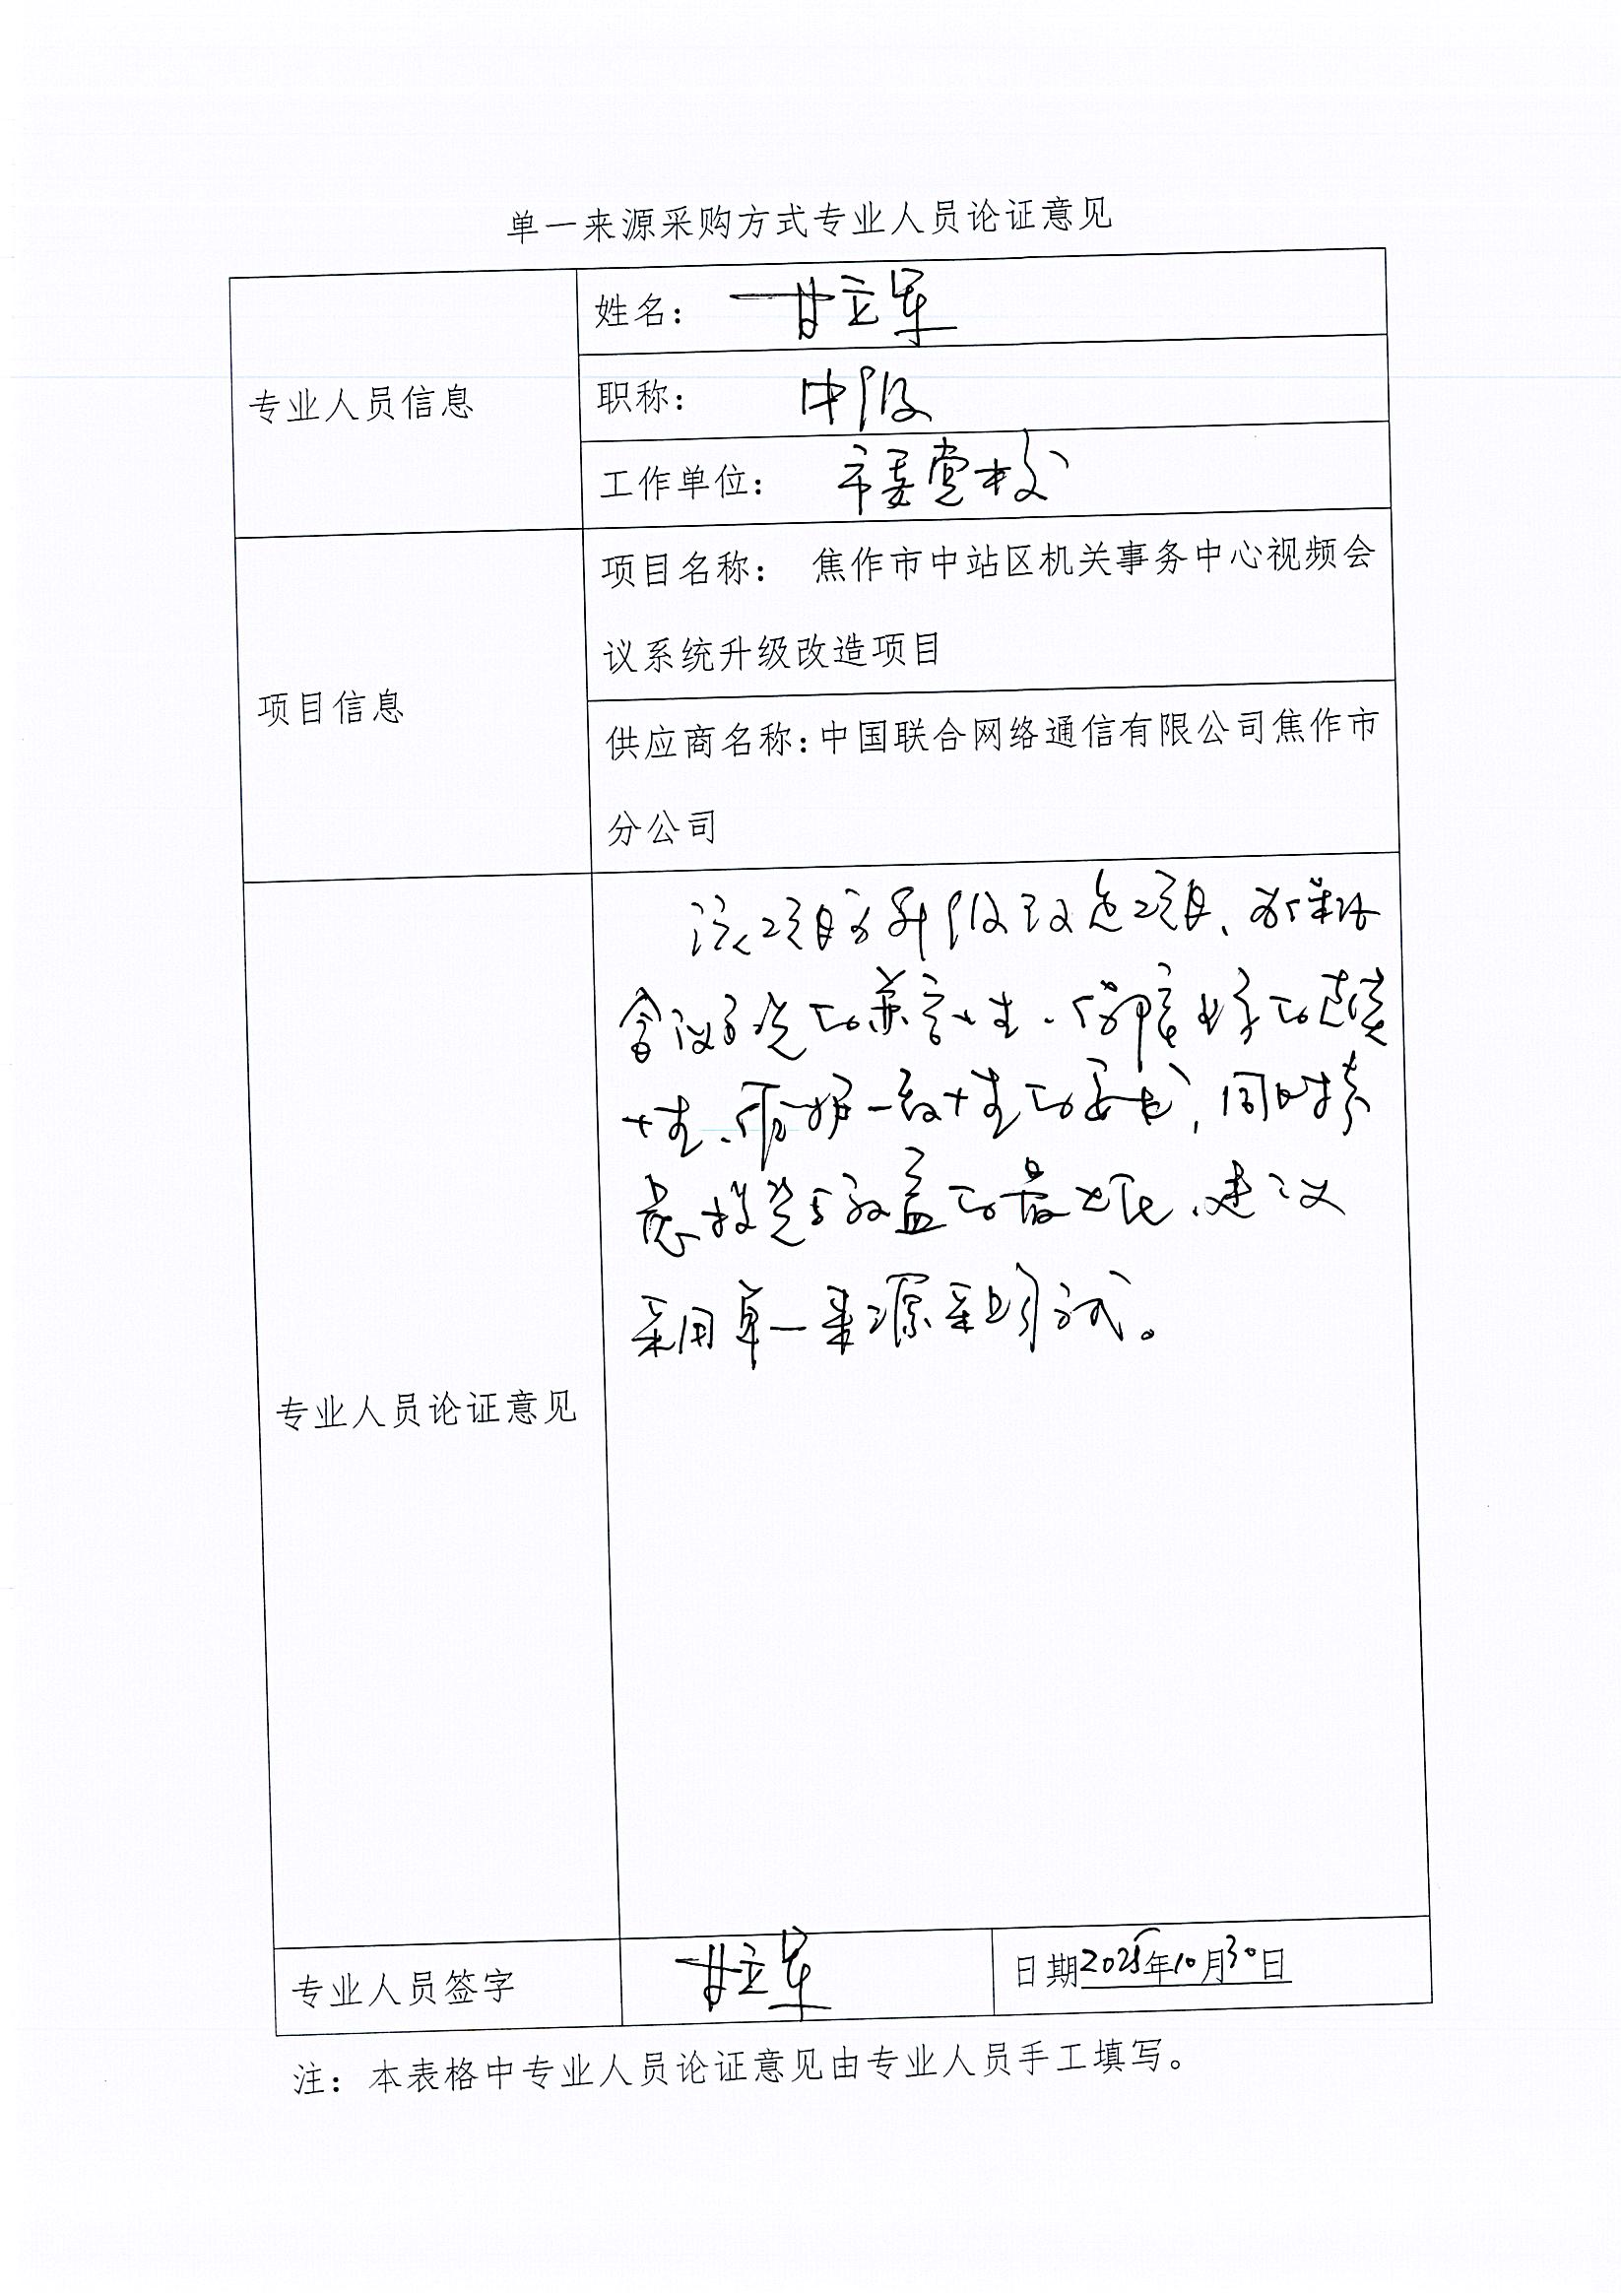 单一来源采购方式专业人员论证意见
专业人员信息
姓名： 甘立军
职称： 中级
工作单位： 市委党校
项目信息
项目名称： 焦作市中站区机关事务中心视频会
议系统升级改造项目
供应商名称：中国联合网络通信有限公司焦作市
分公司
专业人员论证意见
该项目为升级改造项目、为保证
会议系统的兼容性、保障业务的连续
性、需要一致性的要求，同时考
虑投资与效益的最大化、建议
采用单一来源采购方式。
专业人员签字
甘立军
日期2025年10月30日
注：本表格中专业人员论证意见由专业人员手工填写。